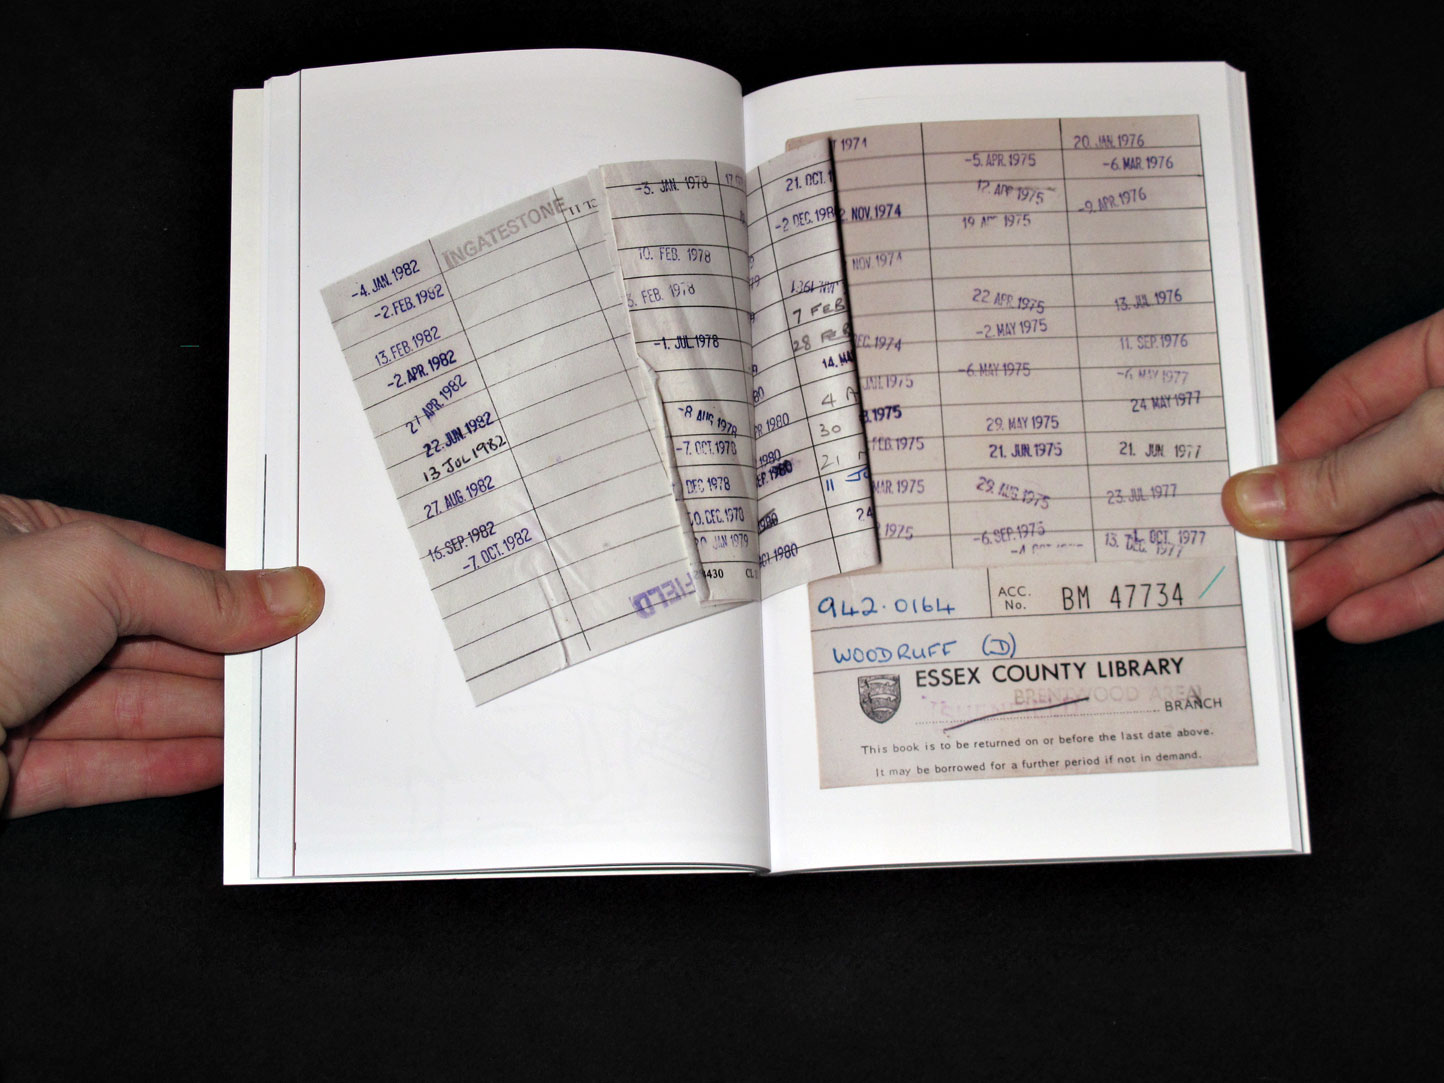 INGATESTONE
-4. JAN. 1982
-2. FEB. 1982
13. FEB. 1982
-2. APR. 1982
27 APR. 1982
22. JUN. 1982
13 JUL 1982
27. AUG. 1982
16. SEP. 1982
-7. OCT. 1982
FIELD
-3. JAN. 1978
10. FEB. 1978
FEB. 1978
-1. JUL 1978
-8 AUG. 1978
-7. OCT. 1978
DEC 1978
JAN 1979
21. OCT. 1
-2 DEC. 198
7 FEB
28 FEB
14. MA
4 A
30
21
11 JU
24
1980
1980
1980
1974
NOV. 1974
NOV. 1974
DEC. 1974
1975
1975
FEB. 1975
MAR. 1975
1975
-5. APR. 1975
12. APR 1975
19 APR 1975
22 APR. 1975
-2. MAY 1975
-6. MAY 1975
29. MAY 1975
21. JUN. 1975
29. AUG. 1975
-6. SEP. 1975
20. JAN. 1976
-6. MAR. 1976
-9. APR. 1976
13. JUL 1976
11. SEP. 1976
-6. MAY 1977
24 MAY 1977
21. JUN 1977
23. JUL 1977
942.0164
ACC. No. BM 47734
WOODRUFF (D)
ESSEX COUNTY LIBRARY
BRENTWOOD AREA
BRANCH
This book is to be returned on or before the last date above.
It may be borrowed for a further period if not in demand.